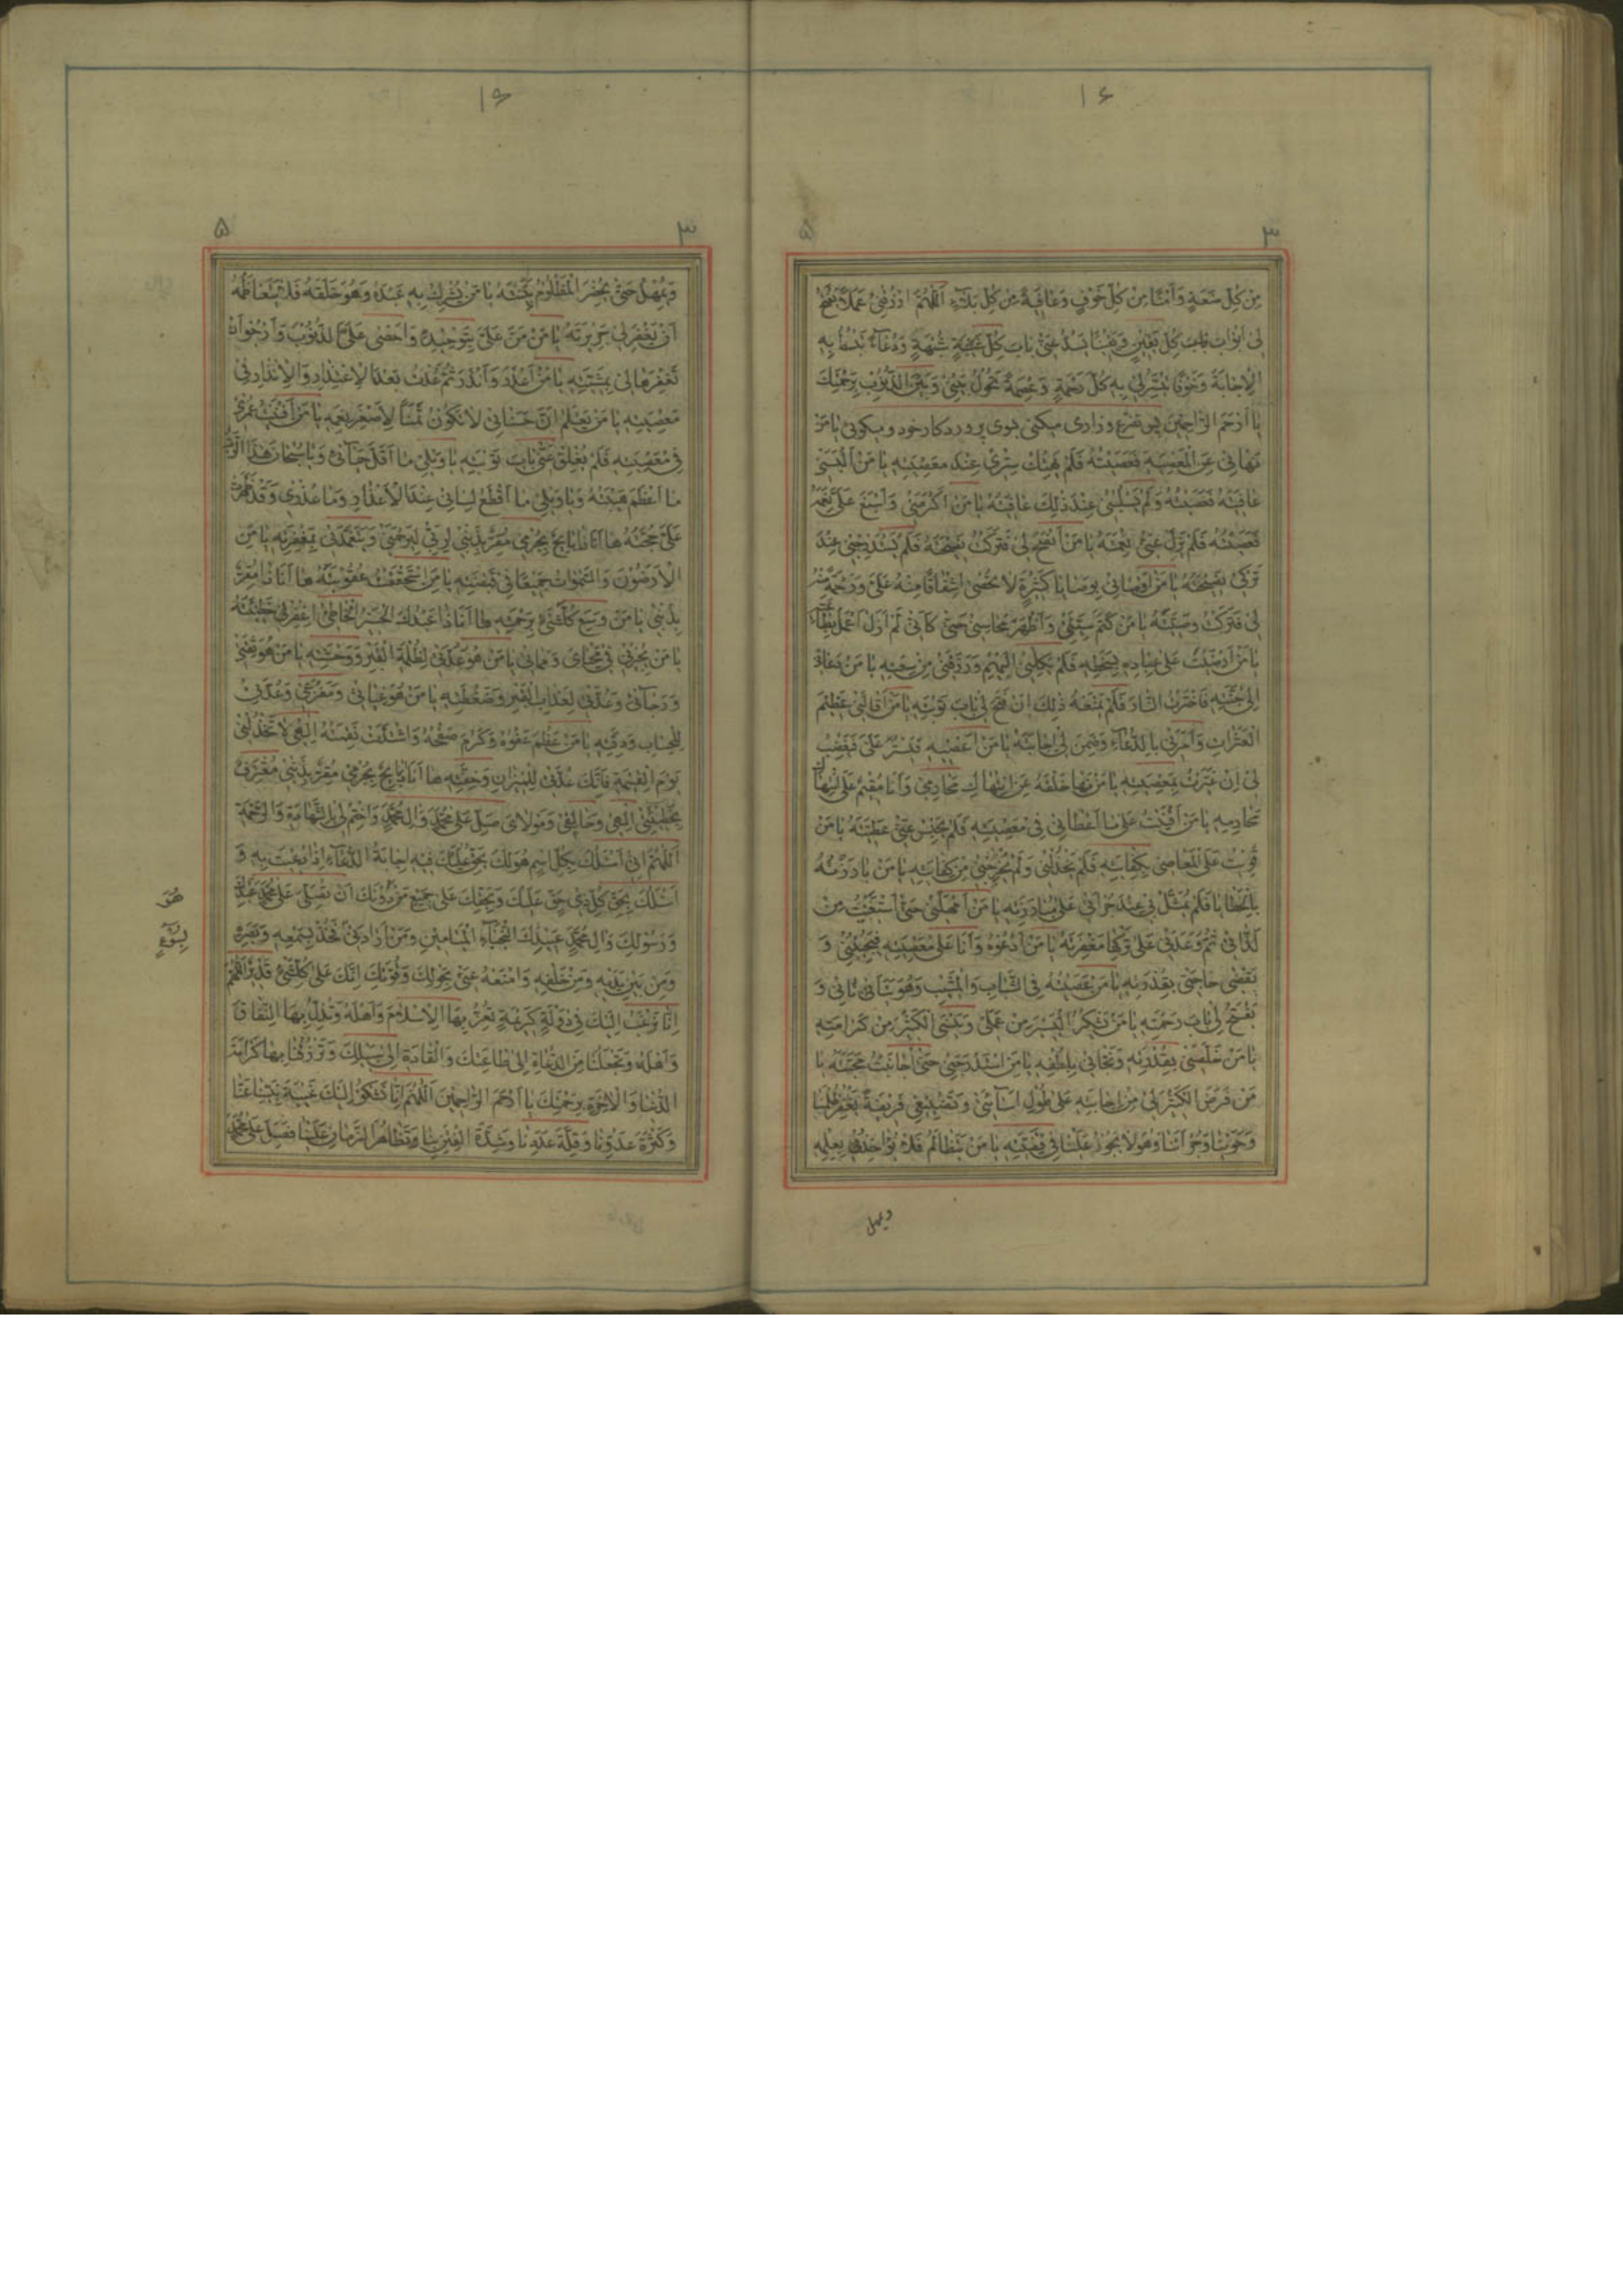 ۱۶
۳ ۵
مِنْ كُلِّ سَعَةٍ وَاَمْنًا مِنْ كُلِّ خَوْفٍ وَعَافِيَةً مِنْ كُلِّ بَلَاءٍ اَللّٰهُمَّ ارْزُقْنِي عَمَلًا يَفْتَحُ
لِي اَبْوَابَ كُلِّ يَقِينٍ وَيَقِينًا يَسُدُّ عَنِّي بَابَ كُلِّ شُبْهَةٍ وَدُعَاءً تَبْسُطُ بِهِ
الْاِجَابَةَ وَخَوْفًا تُيَسِّرُ لِي بِهِ كُلَّ رَحْمَةٍ وَعِصْمَةً تَحُولُ بَيْنِي وَبَيْنَ الذُّنُوبِ بِرَحْمَتِكَ
يَا اَرْحَمَ الرَّاحِمِينَ پس تضرع و زاری میکنی بسوی پروردکار خود و میکوئی يَا مَنْ
نَهَانِي عَنِ الْمَعْصِيَةِ فَعَصَيْتُهُ فَلَمْ يَهْتِكْ سِتْرِي عِنْدَ مَعْصِيَتِهِ يَا مَنْ اَلْبَسَنِي
عَافِيَتَهُ فَعَصَيْتُهُ وَلَمْ يَسْلُبْنِي عِنْدَ ذٰلِكَ عَافِيَتَهُ يَا مَنْ اَكْرَمَنِي وَاَسْبَغَ عَلَيَّ نِعَمَهُ
فَعَصَيْتُهُ فَلَمْ يُزِلْ عَنِّي نِعْمَتَهُ يَا مَنْ نَصَحَ لِي فَتَرَكْتُ نَصِيحَتَهُ فَلَمْ يَسْتَدْرِجْنِي عِنْدَ
تَرْكِي نَصِيحَتَهُ يَا مَنْ اَوْصَانِي بِوَصَايَا كَثِيرَةٍ لَا تُحْصٰى اِشْفَاقًا مِنْهُ عَلَيَّ وَرَحْمَةً مِنْهُ
لِي فَتَرَكْتُ وَصِيَّتَهُ يَا مَنْ كَتَمَ سَيِّئَتِي وَاَظْهَرَ مَحَاسِنِي حَتّٰى كَاَنِّي لَمْ اَزَلْ اَعْمَلُ بِطَاعَتِهِ
يَا مَنْ اَرْضَيْتُ عِبَادَهُ بِسَخَطِهِ فَلَمْ يَكِلْنِي اِلَيْهِمْ وَرَزَقَنِي مِنْ سَعَتِهِ يَا مَنْ دَعَانِي
اِلٰى جَنَّتِهِ فَاخْتَرْتُ النَّارَ فَلَمْ يَمْنَعْهُ ذٰلِكَ اَنْ فَتَحَ لِي بَابَ تَوْبَتِهِ يَا مَنْ اَقَالَنِي عَظِيمَ
الْعَثَرَاتِ وَاَمَرَنِي بِالدُّعَاءِ وَضَمِنَ لِي اِجَابَتَهُ يَا مَنْ اَعْصِيهِ فَيَسْتُرُ عَلَيَّ وَيَغْضَبُ
لِي اِنْ عُيِّرْتُ بِمَعْصِيَتِهِ يَا مَنْ نَهٰى خَلْقَهُ عَنِ انْتِهَاكِ مَحَارِمِي وَاَنَا مُقِيمٌ عَلَى انْتِهَاكِ
مَحَارِمِهِ يَا مَنْ اَفْنَيْتُ مَا اَعْطَانِي فِي مَعْصِيَتِهِ فَلَمْ يَحْبِسْ عَنِّي عَطِيَّتَهُ يَا مَنْ
قَوِيتُ عَلَى الْمَعَاصِي بِكِفَايَتِهِ فَلَمْ يَخْذُلْنِي وَلَمْ يُخْرِجْنِي مِنْ كِفَايَتِهِ يَا مَنْ بَارَزْتُهُ
بِالْخَطَايَا فَلَمْ يُمَثِّلْ بِي عِنْدَ جُرْاَتِي عَلٰى مُبَارَزَتِهِ يَا مَنْ اَمْهَلَنِي حَتّٰى اسْتَغْنَيْتُ مِنْ
لَذَّاتِي ثُمَّ وَعَدَنِي عَلٰى تَرْكِهَا مَغْفِرَتَهُ يَا مَنْ اَدْعُوهُ وَاَنَا عَلٰى مَعْصِيَتِهِ فَيُجِيبُنِي وَ
يَقْضِي حَاجَتِي بِقُدْرَتِهِ يَا مَنْ عَصَيْتُهُ فِي الشَّبَابِ وَالْمَشِيبِ وَهُوَ يَتَاَنَّانِي وَ
يَفْتَحُ لِي بَابَ رَحْمَتِهِ يَا مَنْ يَشْكُرُ الْيَسِيرَ مِنْ عَمَلِي وَيَنْسَى الْكَثِيرَ مِنْ كَرَامَتِهِ
يَا مَنْ خَلَّصَنِي بِقُدْرَتِهِ وَنَجَّانِي بِلُطْفِهِ يَا مَنِ اسْتَدْرَجَنِي حَتّٰى جَانَبْتُ مَحَبَّتَهُ يَا
مَنْ فَرَضَ الْكَثِيرَ لِي مِنْ اِجَابَتِهِ عَلٰى طُولِ اِسَاءَتِي وَتَضْيِيعِي فَرِيضَتَهُ يَا مَنْ يَغْفِرُ ظُلْمَنَا
وَحُوبَنَا وَجُرْاَتَنَا وَهُوَ لَا يَجُورُ عَلَيْنَا فِي قَضِيَّتِهِ يَا مَنْ نَتَظَالَمُ فَلَا يُؤَاخِذُنَا بِعِلْمِهِ
ویمهل
۱۶
۳ ۵
وَيُمْهِلُ حَتّٰى يُحْضِرَ الْمَظْلُومُ بَيِّنَتَهُ يَا مَنْ يُشْرِكُ بِهِ عَبْدُهُ وَهُوَ خَلَقَهُ فَلَا يَتَعَاظَمُهُ
اَنْ يَغْفِرَ لِي جَرِيرَتَهُ يَا مَنْ مَنَّ عَلَيَّ بِتَوْحِيدِهِ وَاَحْصٰى عَلَيَّ الذُّنُوبَ وَاَرْجُو اَنْ
يَغْفِرَهَا لِي بِمَشِيَّتِهِ يَا مَنْ اَعْذَرَ وَاَنْذَرَ ثُمَّ عُدْتُ بَعْدَ الْاِعْذَارِ وَالْاِنْذَارِ فِي
مَعْصِيَتِهِ يَا مَنْ يَعْلَمُ اَنَّ حَسَنَاتِي لَا تَكُونُ ثَمَنًا لِاَصْغَرِ نِعَمِهِ يَا مَنْ اَفْنَيْتُ عُمْرِي
فِي مَعْصِيَتِهِ فَلَمْ يُغْلِقْ عَنِّي بَابَ تَوْبَتِهِ يَا وَيْلِي مَا اَقَلَّ حَيَائِي وَيَا سُبْحَانَ هٰذَا الرَّبِّ
مَا اَعْظَمَ هَيْبَتَهُ وَيَا وَيْلِي مَا اَقْطَعَ لِسَانِي عِنْدَ الْاِعْذَارِ وَمَا عُذْرِي وَقَدْ ظَهَرَتْ
عَلَيَّ حُجَّتُهُ هَا اَنَا ذَا بَائِحٌ بِجُرْمِي مُقِرٌّ بِذَنْبِي لِرَبِّي لِيَرْحَمَنِي وَيَتَغَمَّدَنِي بِمَغْفِرَتِهِ يَا مَنِ
الْاَرَضُونَ وَالسَّمٰوَاتُ جَمِيعًا فِي قَبْضَتِهِ يَا مَنِ اسْتَحْقَقْتُ عُقُوبَتَهُ هَا اَنَا ذَا مُقِرٌّ
بِذَنْبِي يَا مَنْ وَسِعَ كُلَّ شَيْءٍ بِرَحْمَتِهِ هَا اَنَا ذَا عَبْدُكَ الْحَسِيرُ الْخَاطِئُ اغْفِرْ لِي خَطِيئَتَهُ
يَا مَنْ يُجِيرُنِي فِي مَحْيَايَ وَمَمَاتِي يَا مَنْ هُوَ عُدَّتِي لِظُلْمَةِ الْقَبْرِ وَوَحْشَتِهِ يَا مَنْ هُوَ ثِقَتِي
وَرَجَائِي وَعُدَّتِي لِعَذَابِ الْقَبْرِ وَضَغْطَتِهِ يَا مَنْ هُوَ غِيَاثِي وَمَفْزَعِي وَعُدَّتِي
لِلْحِسَابِ وَدِقَّتِهِ يَا مَنْ عَظُمَ عَفْوُهُ وَكَرُمَ صَفْحُهُ وَاشْتَدَّتْ نِقْمَتُهُ اِلٰهِي لَا تَخْذُلْنِي
يَوْمَ الْقِيٰمَةِ فَاِنَّكَ عُدَّتِي لِلْمِيزَانِ وَخِفَّتِهِ هَا اَنَا ذَا بَائِحٌ بِجُرْمِي مُقِرٌّ بِذَنْبِي مُعْتَرِفٌ
بِخَطِيئَتِي اِلٰهِي وَخَالِقِي وَمَوْلَايَ صَلِّ عَلٰى مُحَمَّدٍ وَاٰلِ مُحَمَّدٍ وَاخْتِمْ لِي بِالشَّهَادَةِ وَالرَّحْمَةِ
اَللّٰهُمَّ اِنِّي اَسْئَلُكَ بِكُلِّ اسْمٍ هُوَ لَكَ يَحِقُّ عَلَيْكَ فِيهِ اِجَابَةُ الدُّعَاءِ اِذَا دُعِيتَ بِهِ وَ
اَسْئَلُكَ بِحَقِّ كُلِّ ذِي حَقٍّ عَلَيْكَ وَبِحَقِّكَ عَلٰى جَمِيعِ مَنْ دُونَكَ اَنْ تُصَلِّيَ عَلٰى مُحَمَّدٍ عَبْدِكَ
وَرَسُولِكَ وَاٰلِ مُحَمَّدٍ عَبِيدِكَ النُّجَبَاءِ الْمَيَامِينِ وَمَنْ اَرَادَنِي فَخُذْ بِسَمْعِهِ وَبَصَرِهِ
بِسُوءٍ
وَمِنْ بَيْنِ يَدَيْهِ وَمِنْ خَلْفِهِ وَامْنَعْهُ عَنِّي بِحَوْلِكَ وَقُوَّتِكَ اِنَّكَ عَلٰى كُلِّ شَيْءٍ قَدِيرٌ اَللّٰهُمَّ
اِنَّا نَرْغَبُ اِلَيْكَ فِي دَوْلَةٍ كَرِيمَةٍ تُعِزُّ بِهَا الْاِسْلَامَ وَاَهْلَهُ وَتُذِلُّ بِهَا النِّفَاقَ
وَاَهْلَهُ وَتَجْعَلُنَا مِنَ الدُّعَاةِ اِلٰى طَاعَتِكَ وَالْقَادَةِ اِلٰى سَبِيلِكَ وَتَرْزُقُنَا بِهَا كَرَامَةَ
الدُّنْيَا وَالْاٰخِرَةِ بِرَحْمَتِكَ يَا اَرْحَمَ الرَّاحِمِينَ اَللّٰهُمَّ اِنَّا نَشْكُو اِلَيْكَ غَيْبَةَ نَبِيِّنَا عَنَّا
وَكَثْرَةَ عَدُوِّنَا وَقِلَّةَ عَدَدِنَا وَشِدَّةَ الْفِتَنِ بِنَا وَتَظَاهُرَ الزَّمَانِ عَلَيْنَا فَصَلِّ عَلٰى مُحَمَّدٍ